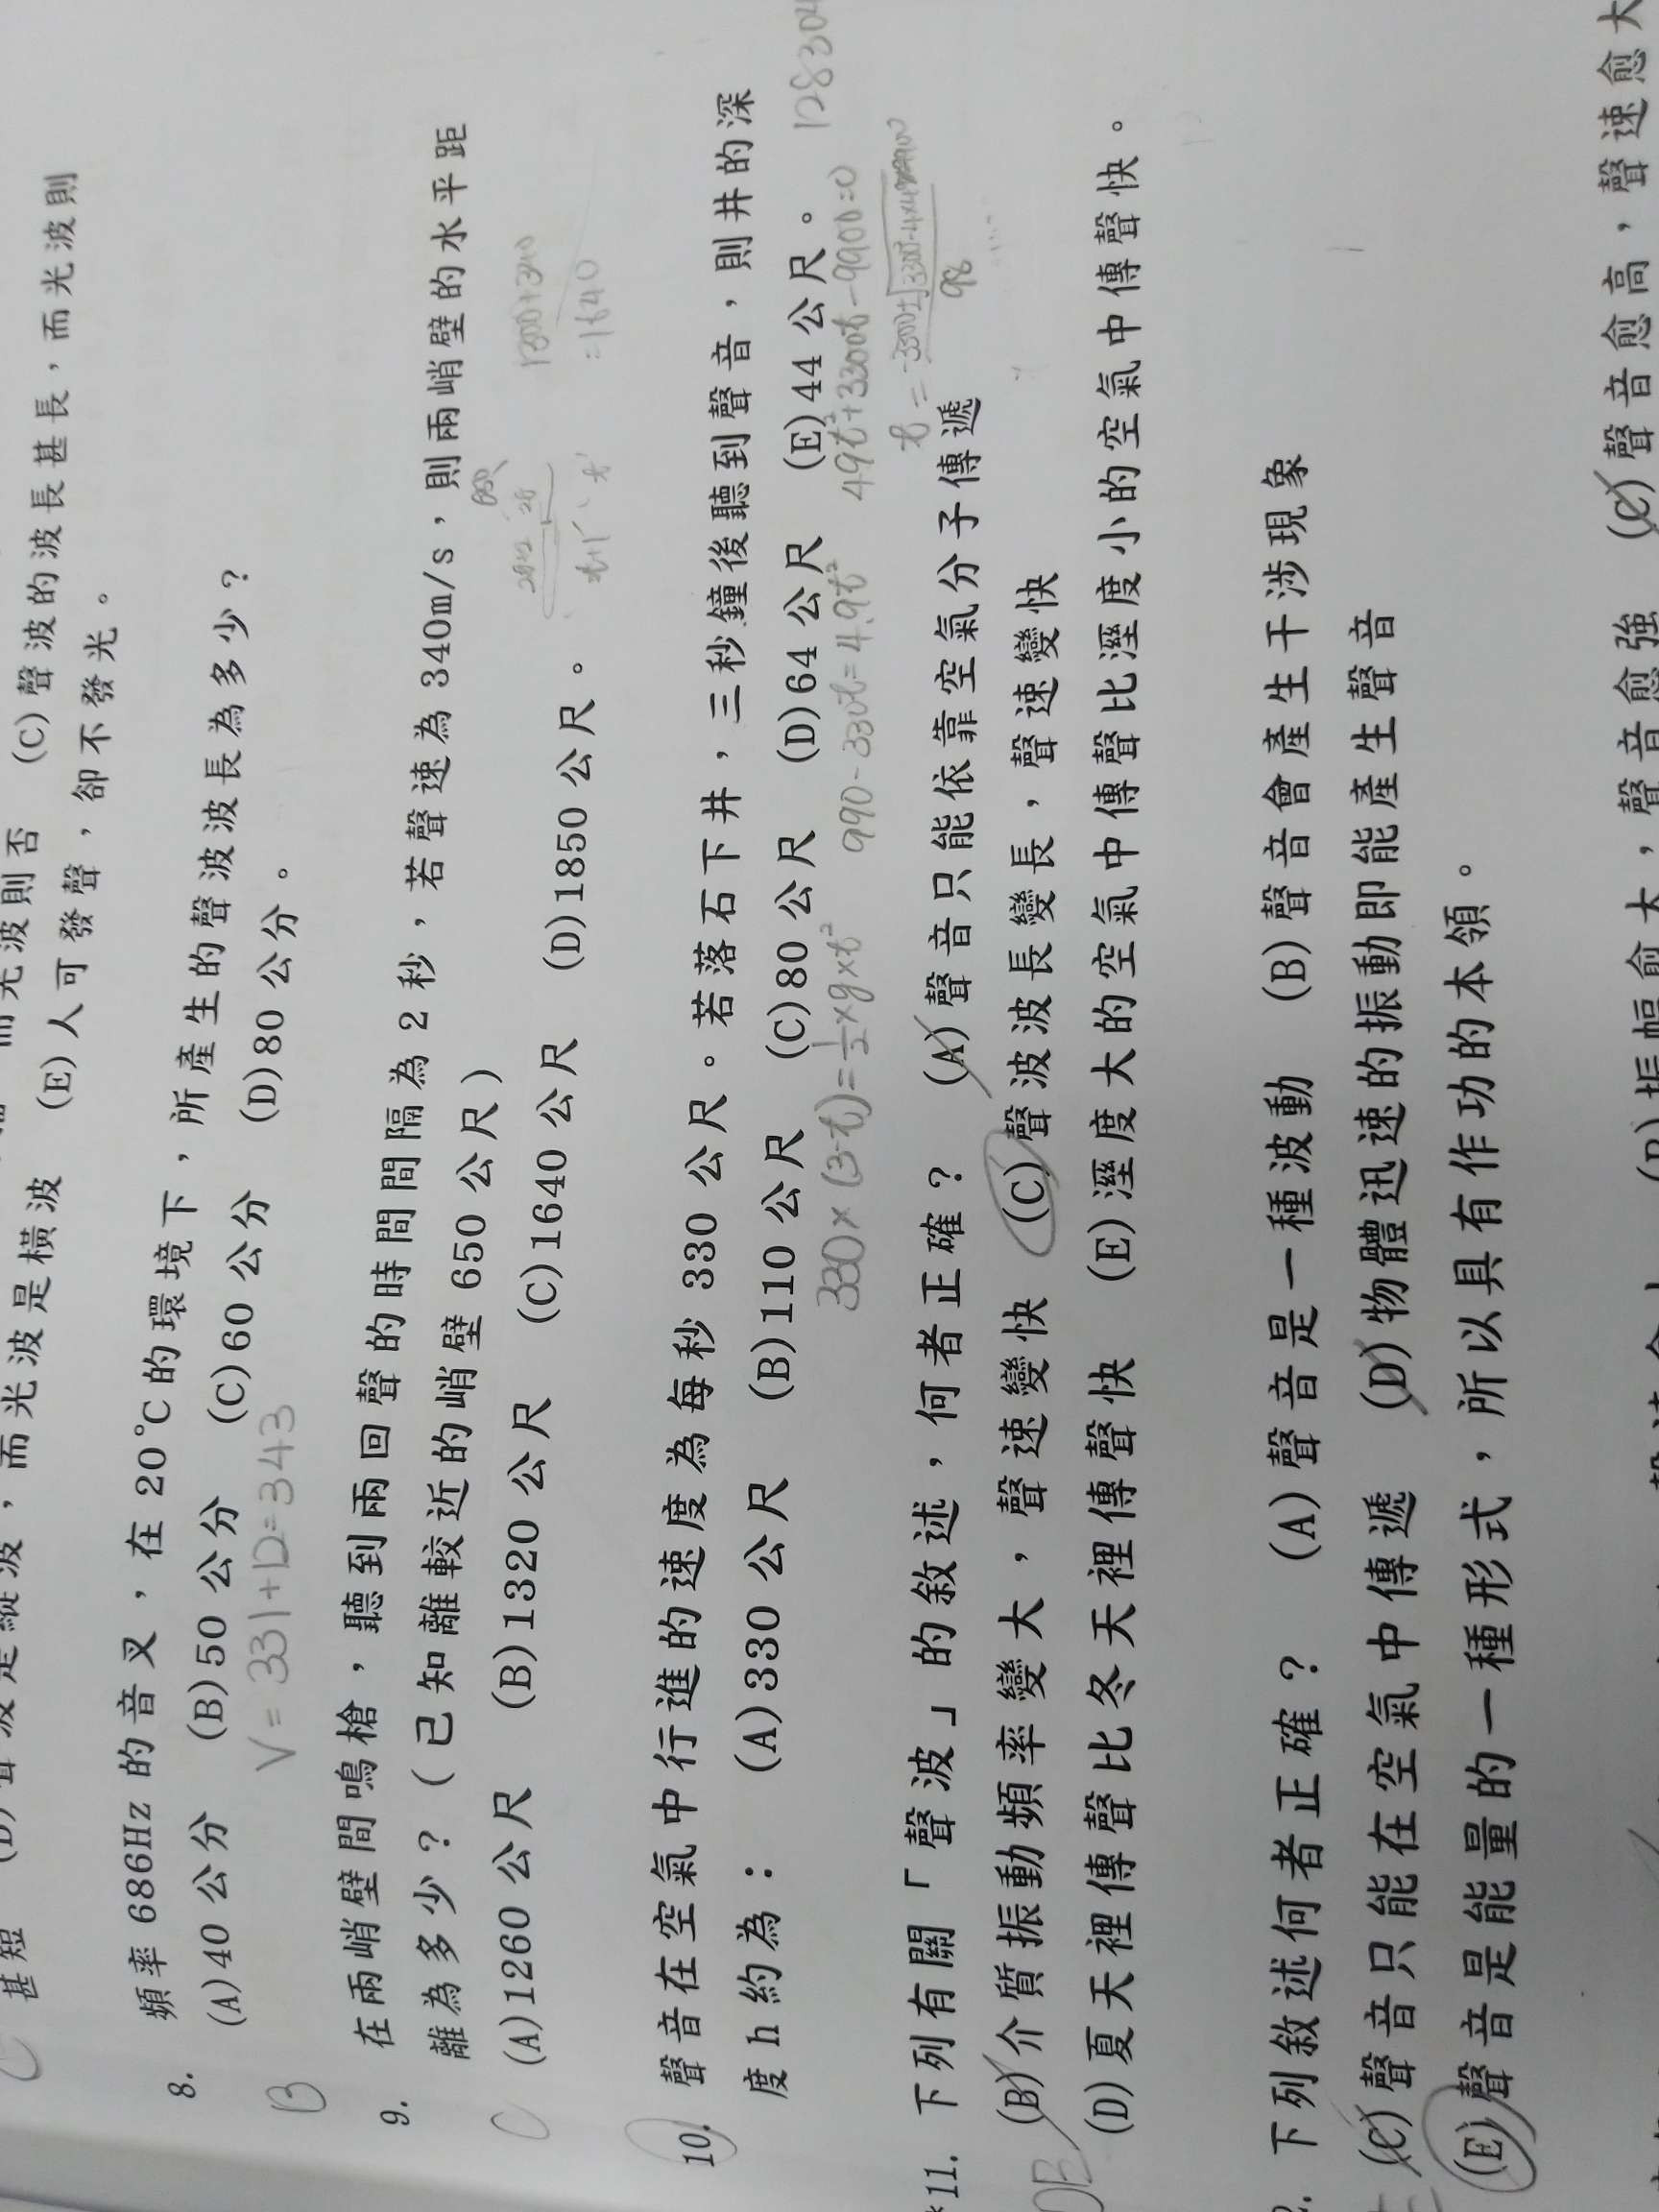 甚短
而光波是橫波
而光波則否 (C)聲波的波長甚長，而光波則
(E)人可發聲，卻不發光。
8. 頻率686Hz的音叉，在20℃的環境下，所產生的聲波波長為多少？
(A)40公分 (B)50公分 (C)60公分 (D)80公分。
B
V=331+12=343
9. 在兩峭壁間鳴槍，聽到兩回聲的時間間隔為2秒，若聲速為340m/s，則兩峭壁的水平距
離為多少？(已知離較近的峭壁650公尺)
(A)1260公尺 (B)1320公尺 (C)1640公尺 (D)1850公尺。
C
1300+340
=1640
10. 聲音在空氣中行進的速度為每秒330公尺。若落石下井，三秒鐘後聽到聲音，則井的深
度h約為： (A)330公尺 (B)110公尺 (C)80公尺 (D)64公尺 (E)44公尺。
330×(3-t)=½×g×t² 990-330t=4.9t² 49t²+3300t-9900=0
*11. 下列有關「聲波」的敘述，何者正確？ (A)聲音只能依靠空氣分子傳遞
(B)介質振動頻率變大，聲速變快 (C)聲波波長變長，聲速變快
(D)夏天裡傳聲比冬天裡傳聲快 (E)溼度大的空氣中傳聲比溼度小的空氣中傳聲快。
下列敘述何者正確？ (A)聲音是一種波動 (B)聲音會產生干涉現象
(C)聲音只能在空氣中傳遞 (D)物體迅速的振動即能產生聲音
(E)聲音是能量的一種形式，所以具有作功的本領。
振幅愈大，聲音愈強 (C)聲音愈高，聲速愈大